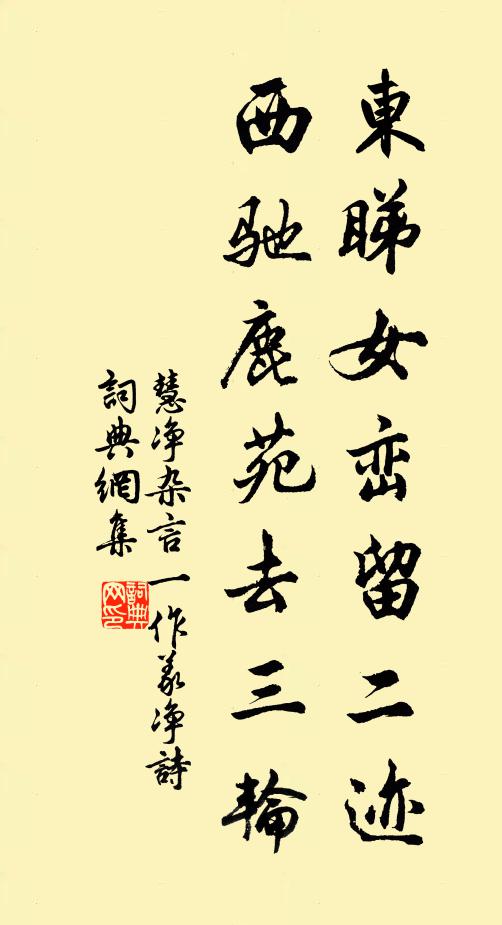 東睇女峦留二迹
西驰鹿苑去三輪
慧净杂言一作义净詩
詞典網集
詞典
网印